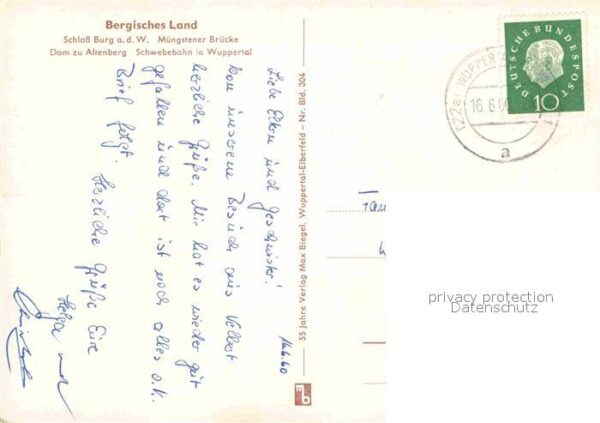 Bergisches Land
Schloß Burg a. d. W. Müngstener Brücke
Dom zu Altenberg Schwebebahn in Wuppertal
16.6.60
Liebe Eltern und Geschwister!
Von unserem Besuch aus Velbert
herzliche Grüße. Mir hat es wieder gut
gefallen und dort ist noch alles o.k.
Brief folgt.
Herzliche Grüße Eure
Helga und
55 Jahre Verlag Max Biegel, Wuppertal-Elberfeld – Nr. Bld. 304
DEUTSCHE BUNDESPOST
10
(22a) WUPPER
16.6.
a
privacy protection
Datenschutz